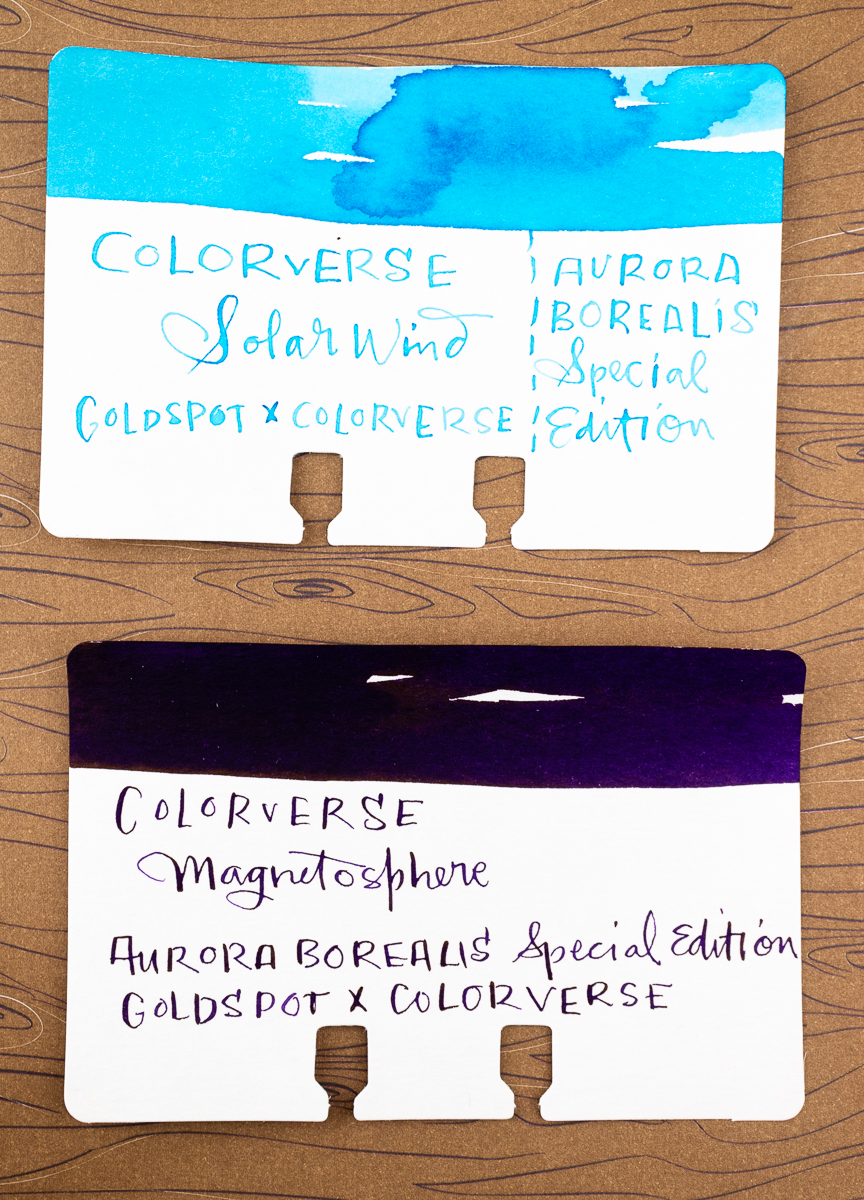 COLORVERSE
Solar Wind
GOLDSPOT X COLORVERSE
AURORA
BOREALIS
Special
Edition
COLORVERSE
Magnetosphere
AURORA BOREALIS Special Edition
GOLDSPOT X COLORVERSE